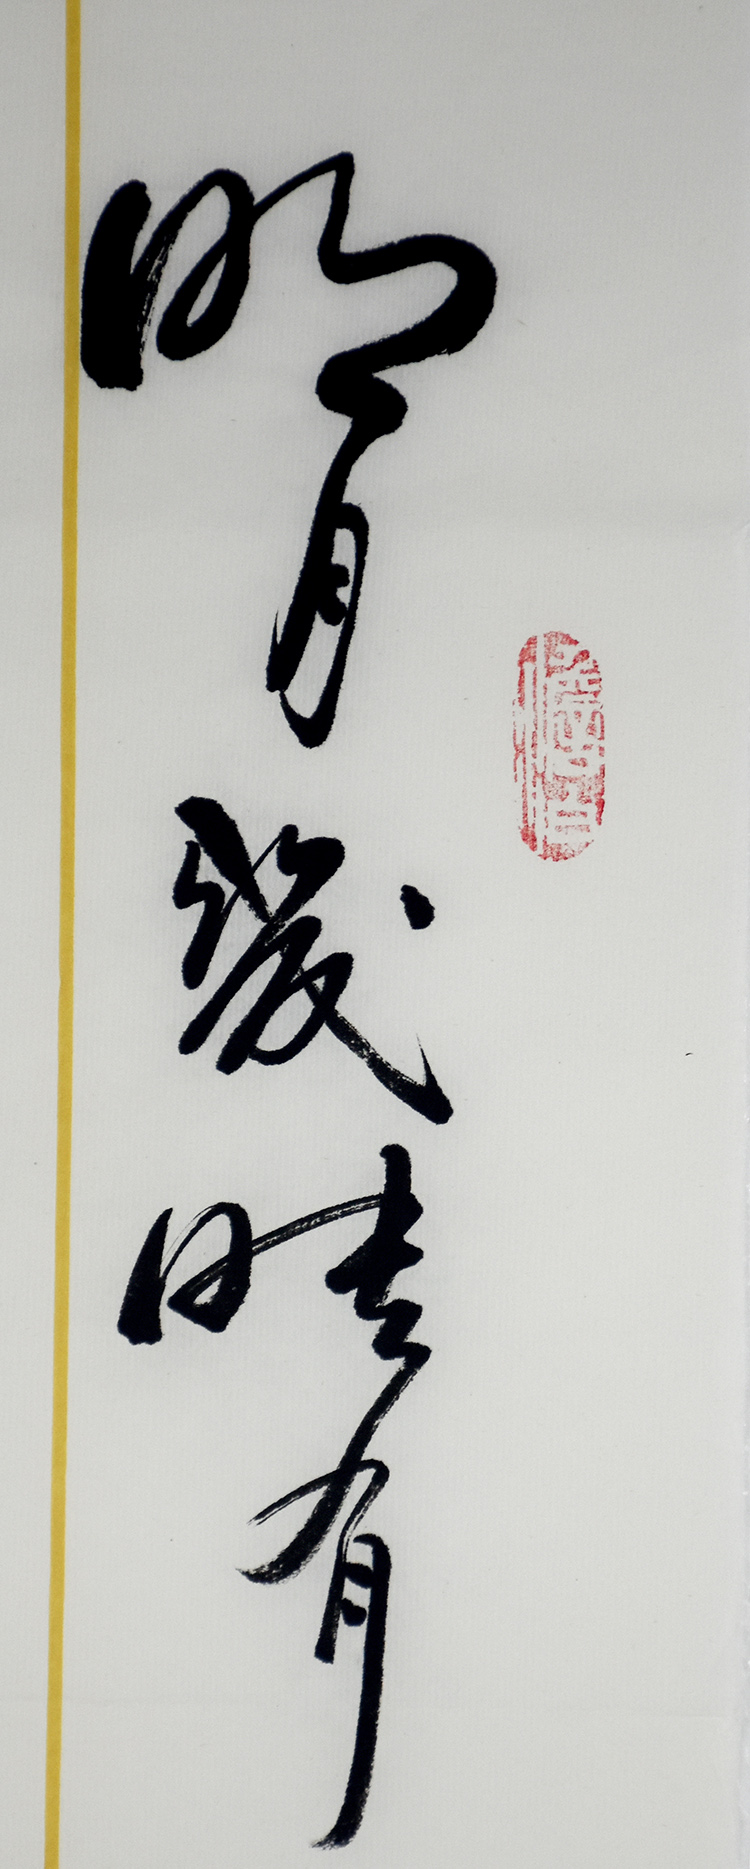 明月幾時有